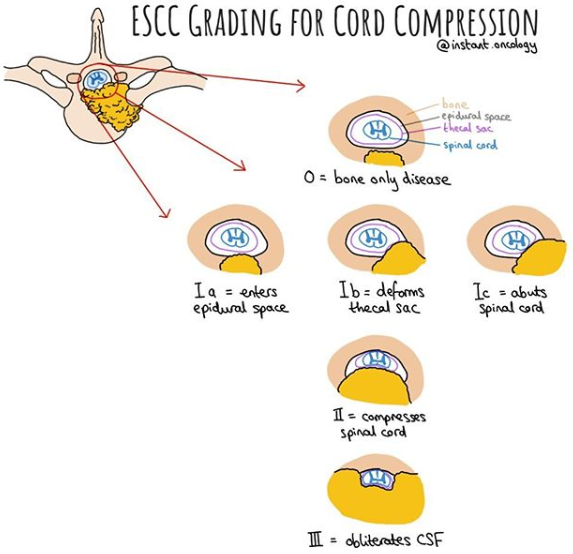 ESCC GRADING FOR CORD COMPRESSION
@instant.oncology
bone
epidural space
thecal sac
spinal cord
0 = bone only disease
Ia = enters
epidural space
Ib = deforms
thecal sac
Ic = abuts
spinal cord
II = compresses
spinal cord
III = obliterates CSF